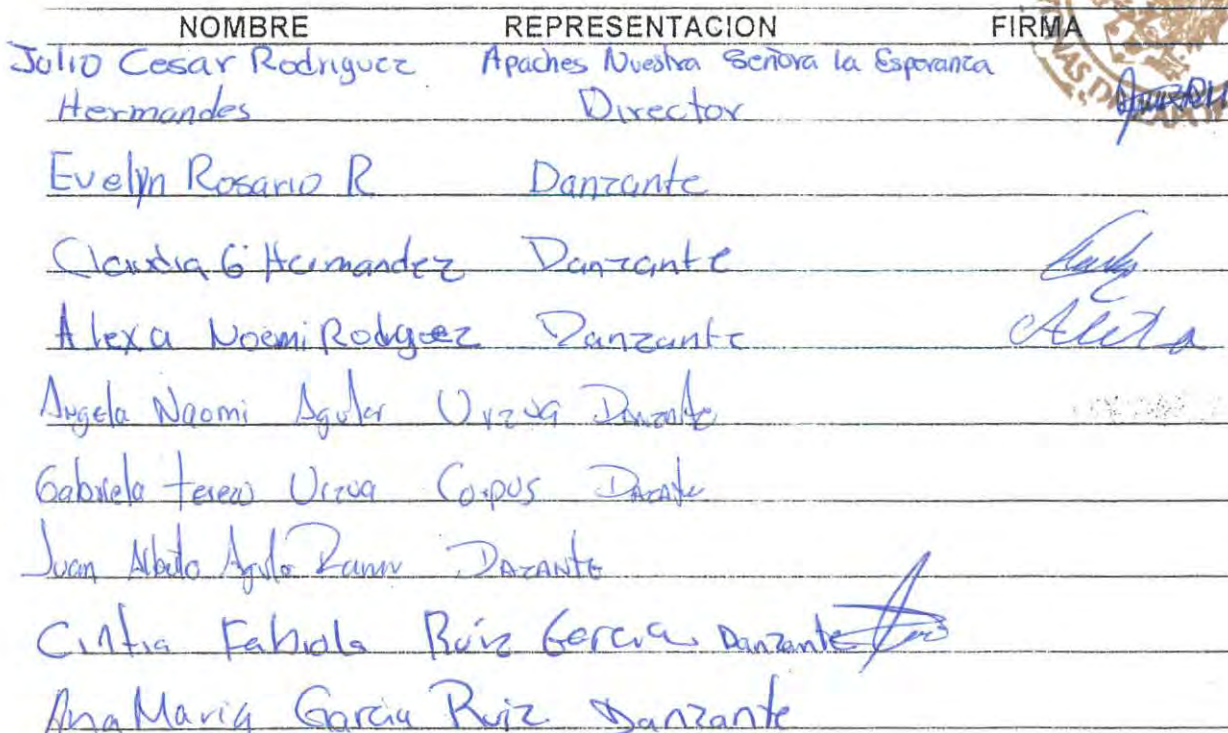 NOMBRE REPRESENTACION FIRMA
Julio Cesar Rodriguez Apaches Nuestra Señora la Esperanza
Hermandes Director
Evelyn Rosario R Danzante
Claudia G Hernandez Danzante
Alexa Noemi Rodguez Danzante
Angela Naomi Aguilar Urzua Danzante
Gabriela Urzua Corpus Dazante
Juan Alberto Dazante
Cintia Fabiola Ruíz Garcia Danzante
Ana Maria Garcia Ruiz Danzante